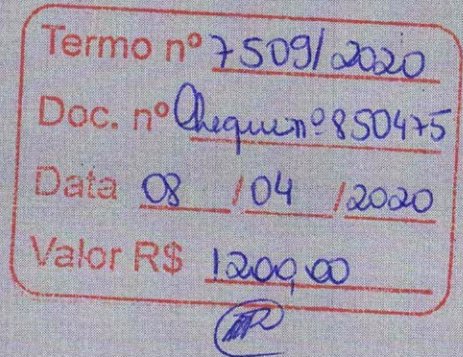 Termo nº 7509/2020
Doc. nº Cheque nº 850475
Data 08 /04 /2020
Valor R$ 1200,00